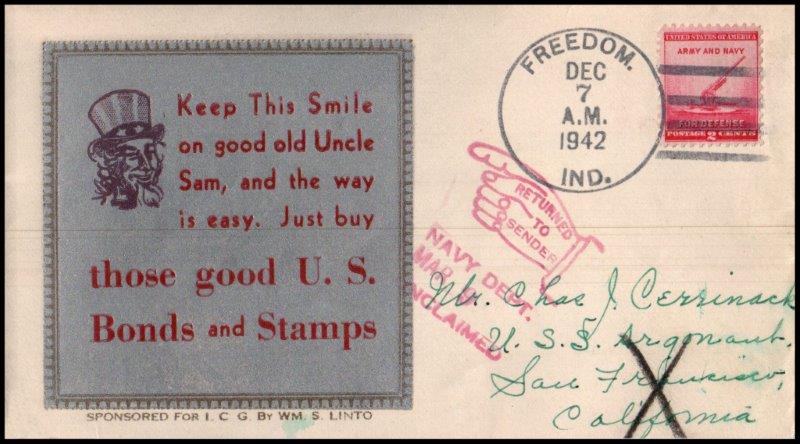 Keep This Smile
on good old Uncle
Sam, and the way
is easy. Just buy
those good U. S.
Bonds and Stamps
SPONSORED FOR I. C. G. BY WM. S. LINTO
FREEDOM.
DEC
7
A.M.
1942
IND.
UNITED STATES OF AMERICA
ARMY AND NAVY
FOR DEFENSE
POSTAGE 2 CENTS
RETURNED
TO
SENDER
NAVY DEPT.
UNCLAIMED
Mr. Chas J. Cerrinack
U. S. S. Argonaut,
San Francisco,
California